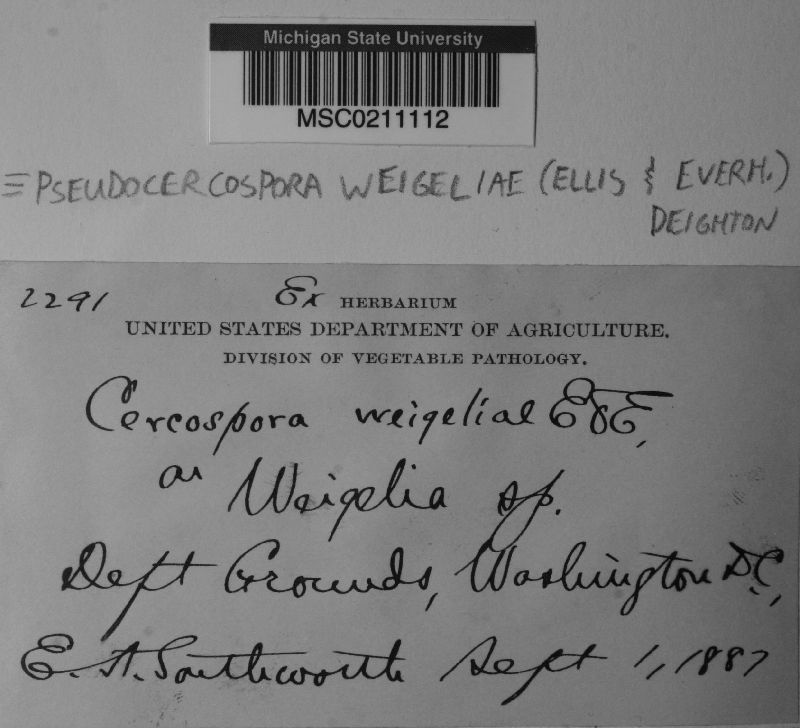 Michigan State University
MSC0211112
= PSEUDOCERCOSPORA WEIGELIAE (ELLIS & EVERH.)
DEIGHTON
2291 Ex HERBARIUM
UNITED STATES DEPARTMENT OF AGRICULTURE.
DIVISION OF VEGETABLE PATHOLOGY.
Cercospora weigeliae E&E,
on Weigelia sp.
Dept Grounds, Washington D.C.,
E. A. Southworth Sept 1, 1887